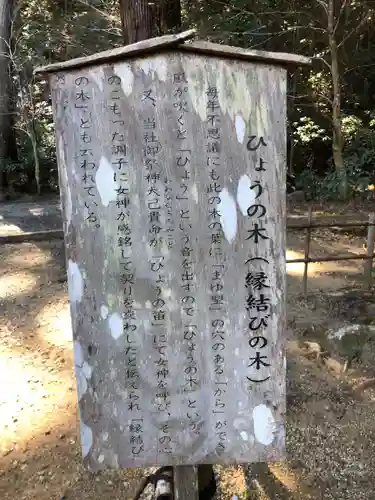 ひょうの木（縁結びの木）
毎年不思議にも此の木の葉に「まゆ型」の穴のある「から」ができ
風が吹くと「ひょう」という音を出すので「ひょうの木」という。
又、当社御祭神大己貴命が「ひょうの笛」にて女神を呼び、その心
おおなむちのみこと
のこもった調子に女神が感銘して契りを交わしたと伝れられ、「縁結び
の木」とも云われている。